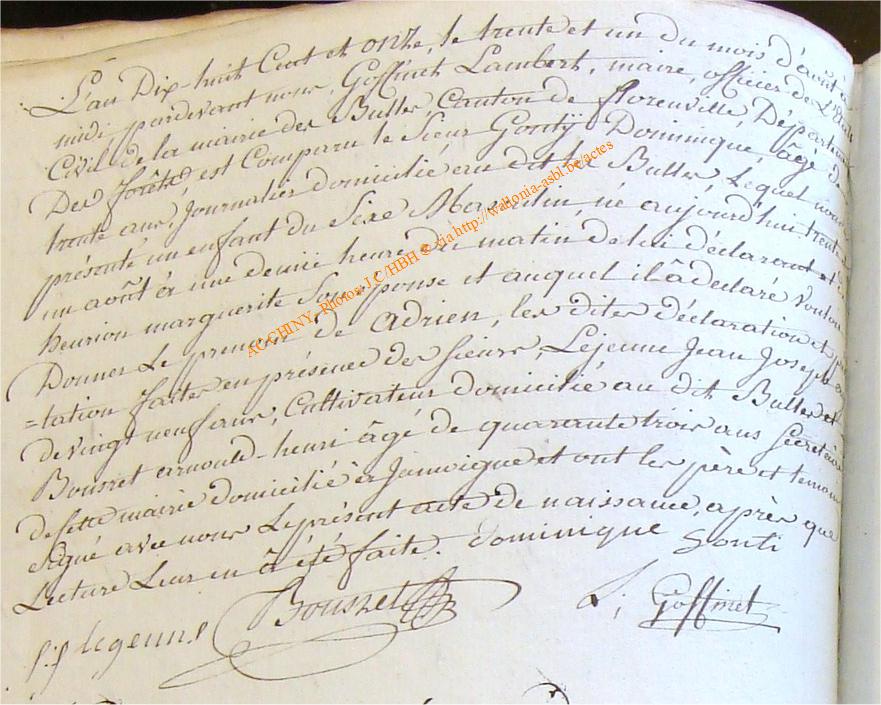 L'an Dix-huit Cent et onze, le trente et un du mois d'août à
midi pardevant nous, Goffinet Lambert, maire, officier de L'Etat
Civil de la mairie des Bulles, Canton de florenville, Départem
Des forêts, est Comparu le Sieur Gontÿ Dominique, âge de
trente ans, Journalier domicilié au dit les Bulles, Lequel nous a
présenté un enfant du Sexe Masculin, né aujourd'hui trente
un août à une demie heure du matin, de lui déclarant et de
henrion marguerite Son Eponse et auquel il â declaré vouloir
Donner Le prenom de Adrien, les dites déclaration et
=tation faites en présence des Sieurs, Lejeune Jean Joseph
de vingt neuf ans, Cultivateur domicilié au dit Bulles et
Bousret arnould-henri âgé de quarante trois ans Secretaire
de cette mairie domicilié à Jamoigne et ont les père et temoins
Signé avec nous Le présent acte de naissance, après que
Lecture Leur en â été faite. dominique Gonti
j.j legenne Bousret L; Goffinet
AC CHINY - Photos: J.C/HBH © via http://wallonia-asbl.be/actes